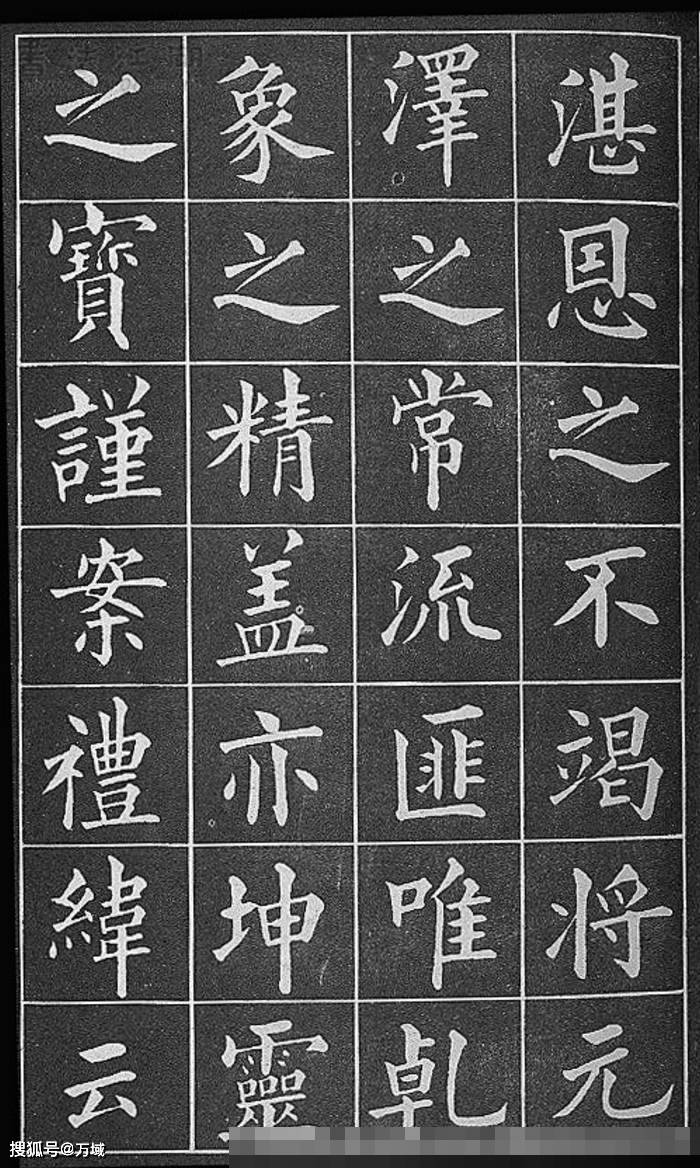 湛恩之不竭将元
澤之常流匪唯乹
象之精盖亦坤靈
之寶謹案禮緯云
搜狐号@万域